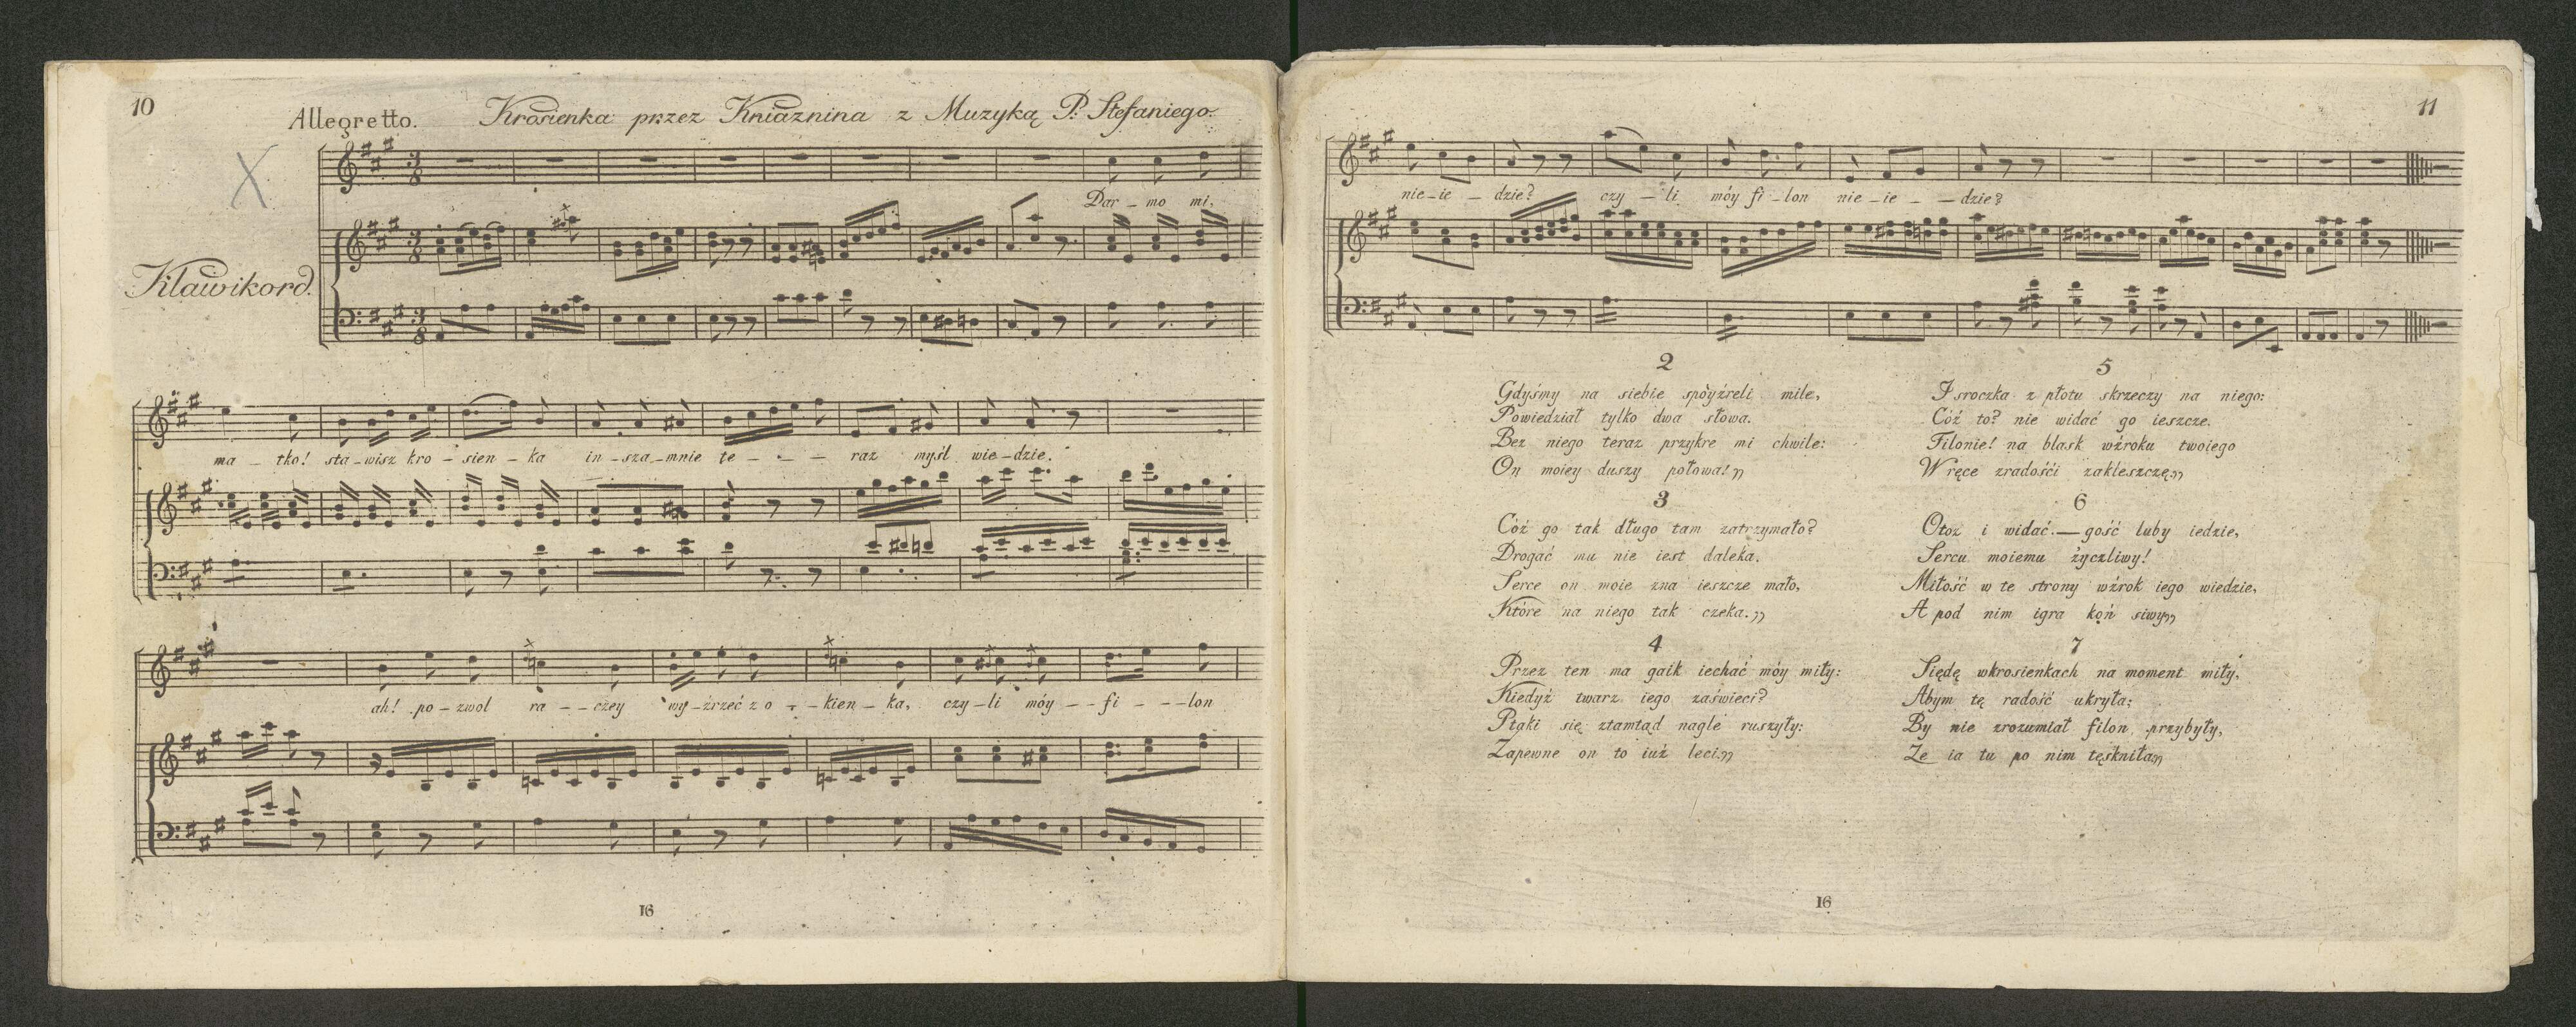 10
Allegretto. Krosienka przez Kniaznina z Muzyką P. Stefaniego.
Klawikord.
Dar - mo mi,
ma - tko! sta - wisz kro - sien - ka in - sza - mnie te - - - raz myśl wie - dzie.
ah! po - zwol ra - - czey wy - źrzeć z o - - kien - ka, czy - li móy - - fi - - - lon
16
11
nie - ie - dzie? czy - li móy fi - lon nie - ie - - dzie?
2
Gdyśmy na siebie spóyźreli mile,
Powiedział tylko dwa słowa.
Bez niego teraz przykre mi chwile:
On moiey duszy połowa!„
3
Cóż go tak długo tam zatrzymało?
Drogać mu nie iest daleka.
Serce on moie zna ieszcze mało,
Które na niego tak czeka.„
4
Przez ten ma gaik iechać móy miły:
Kiedyż twarz iego zaświeci?
Ptaki się ztamtąd nagle ruszyły:
Zapewne on to iuż leci„
5
I sroczka z płotu skrzeczy na niego:
Cóż to? nie widać go ieszcze.
Filonie! na blask wźroku twoiego
Wręce zradości zakleszczę„
6
Otoz i widać.— gość luby iedzie,
Sercu moiemu życzliwy!
Miłość w te strony wźrok iego wiedzie,
A pod nim igra koń siwy„
7
Siędę wkrosienkach na moment miły,
Abym tę radość ukryła;
By nie zrozumiał filon przybyły,
Ze ia tu po nim tęskniła„
16